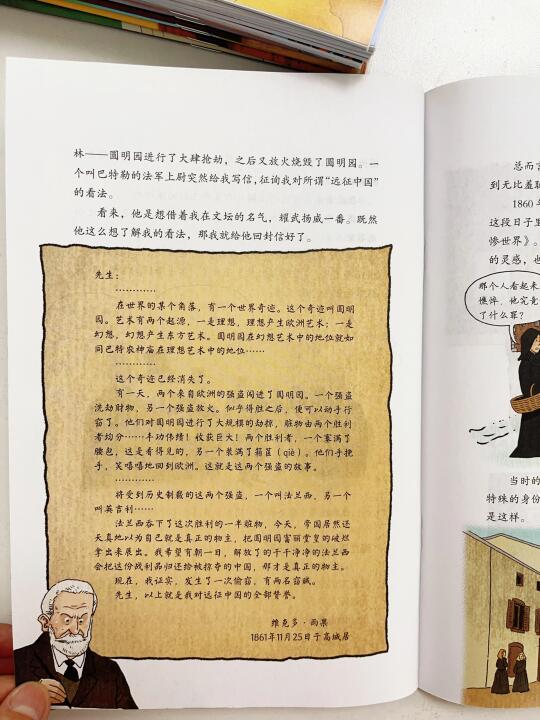 林——圆明园进行了大肆抢劫，之后又放火烧毁了圆明园。一
个叫巴特勒的法军上尉突然给我写信，征询我对所谓“远征中国”
的看法。
看来，他是想借着我在文坛的名气，耀武扬威一番。既然
他这么想了解我的看法，那我就给他回封信好了。
先生：
…………
在世界的某个角落，有一个世界奇迹。这个奇迹叫圆明
园。艺术有两个起源，一是理想，理想产生欧洲艺术；一是
幻想，幻想产生东方艺术。圆明园在幻想艺术中的地位就如
同巴特农神庙在理想艺术中的地位……
…………
这个奇迹已经消失了。
有一天，两个来自欧洲的强盗闯进了圆明园。一个强盗
洗劫财物，另一个强盗放火。似乎得胜之后，便可以动手行
窃了。他们对圆明园进行了大规模的劫掠，赃物由两个胜利
者均分……丰功伟绩！收获巨大！两个胜利者，一个塞满了
腰包，这是看得见的，另一个装满了箱箧（qiè）。他们手挽
手，笑嘻嘻地回到欧洲。这就是这两个强盗的故事。
…………
将受到历史制裁的这两个强盗，一个叫法兰西，另一个
叫英吉利……
法兰西吞下了这次胜利的一半赃物，今天，帝国居然还
天真地以为自己就是真正的物主，把圆明园富丽堂皇的破烂
拿出来展出。我希望有朝一日，解放了的干干净净的法兰西
会把这份战利品归还给被掠夺的中国，那才是真正的物主。
现在，我证实，发生了一次偷窃，有两名窃贼。
先生，以上就是我对远征中国的全部赞誉。
维克多·雨果
1861年11月25日于高城居
总而言
到无比羞耻
1860年
这段日子里
惨世界》。
的灵感，也
那个人看起来
憔悴，他究竟
了什么罪？
当时的
特殊的身份
是这样。